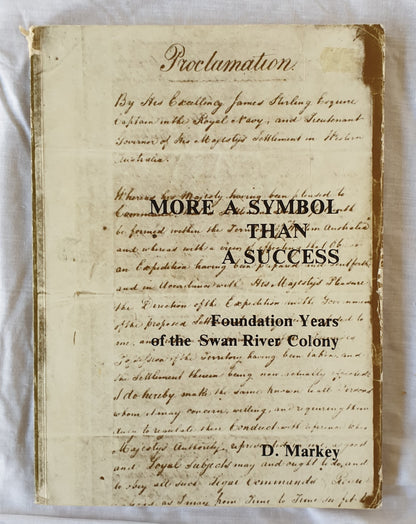 Proclamation
By His Excellency James Stirling Esquire
Captain in the Royal Navy, and Lieutenant
Governor of His Majesty's Settlement in Western
Australia.
Whereas His Majesty having been pleased to
Command
MORE A SYMBOL
be formed within the
THAN
and whereas with a view
A SUCCESS
an Expedition having been prepared and sent forth
and in accordance with His Majesty's Pleasure
the Direction of the Expedition and the Government
of the proposed
Foundation Years
of the Swan River Colony
of the Territory having been taken, and
the Settlement therein being now actually effected
I do hereby make the same known to all Persons
whom it may concern, willing, and requiring them
duly to regulate their Conduct with reference to His
Majesty's Authority, represented
D. Markey
Loyal Subjects may and ought to do, and
to obey all such Legal Commands
as I may from Time to Time see fit